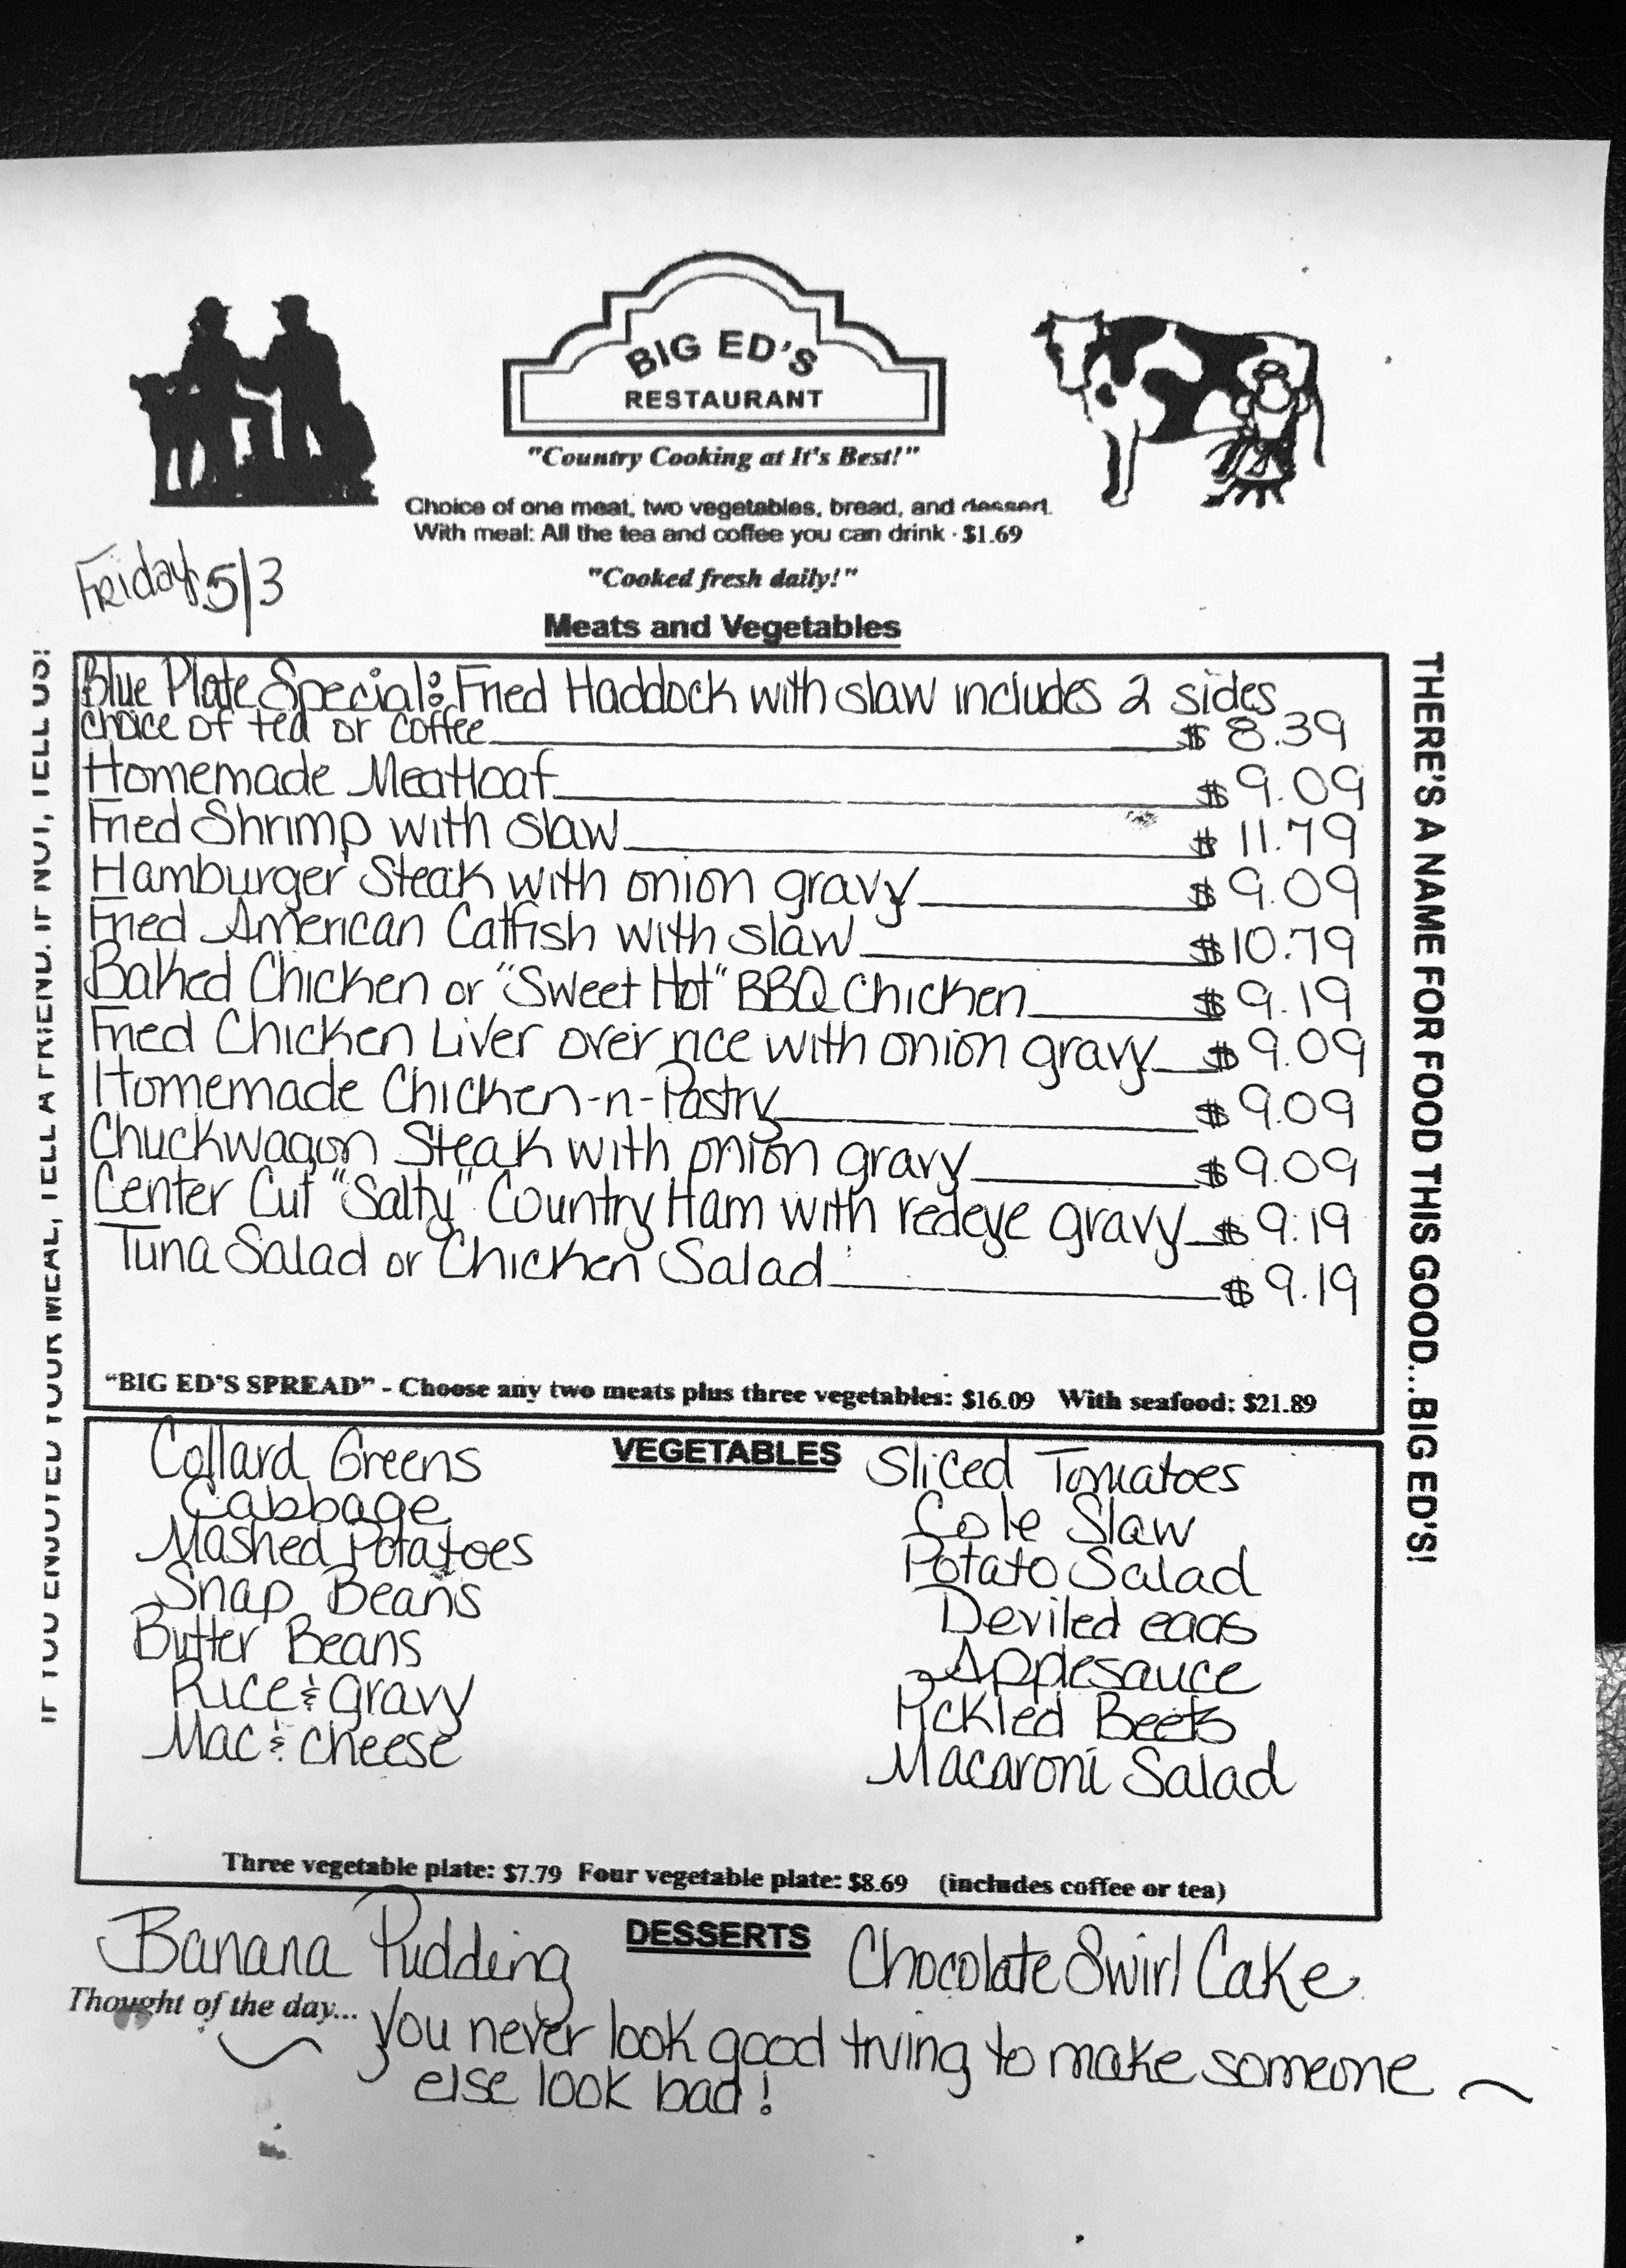 BIG ED'S
RESTAURANT
"Country Cooking at It's Best!"
Choice of one meat, two vegetables, bread, and dessert.
With meal: All the tea and coffee you can drink · $1.69
"Cooked fresh daily!"
Friday 5/3
Meats and Vegetables
Blue Plate Special: Fried Haddock with slaw includes 2 sides
choice of tea or coffee $ 8.39
Homemade Meatloaf $ 9.09
Fried Shrimp with slaw $ 11.79
Hamburger Steak with onion gravy $ 9.09
Fried American Catfish with slaw $10.79
Baked Chicken or "Sweet Hot" BBQ Chicken $ 9.19
Fried Chicken Liver over rice with onion gravy $ 9.09
Homemade Chicken-n-Pastry $ 9.09
Chuckwagon Steak with onion gravy $ 9.09
Center Cut "Salty" Country Ham with redeye gravy $ 9.19
Tuna Salad or Chicken Salad $ 9.19
"BIG ED'S SPREAD" - Choose any two meats plus three vegetables: $16.09 With seafood: $21.89
VEGETABLES
Collard Greens
Cabbage
Mashed Potatoes
Snap Beans
Butter Beans
Rice & gravy
Mac & cheese
Sliced Tomatoes
Cole Slaw
Potato Salad
Deviled eggs
Applesauce
Pickled Beets
Macaroni Salad
Three vegetable plate: $7.79 Four vegetable plate: $8.69 (includes coffee or tea)
DESSERTS
Banana Pudding
Chocolate Swirl Cake
Thought of the day... You never look good trying to make someone
else look bad!
IF YOU ENJOYED YOUR MEAL, TELL A FRIEND. IF NOT, TELL US!
THERE'S A NAME FOR FOOD THIS GOOD...BIG ED'S!